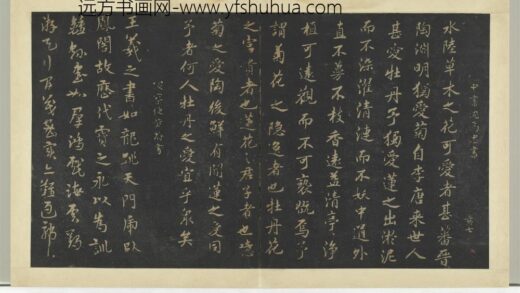 远方书画网-www.yfshuhua.com
水陸草木之花可愛者甚蕃晉
陶淵明獨愛菊自李唐来世人
甚愛牡丹予獨愛蓮之出淤泥
而不染濯清漣而不妖中通外
直不蔓不枝香遠益清亭亭淨
植可遠觀而不可褻翫焉予
謂菊花之隐逸者也牡丹花
之富貴者也蓮花之君子者也噫
菊之愛陶後鮮有聞蓮之愛同
予者何人牡丹之愛宜乎衆矣
王羲之書如龍跳天門虎臥
鳳閣故歷代寳之永以為訓